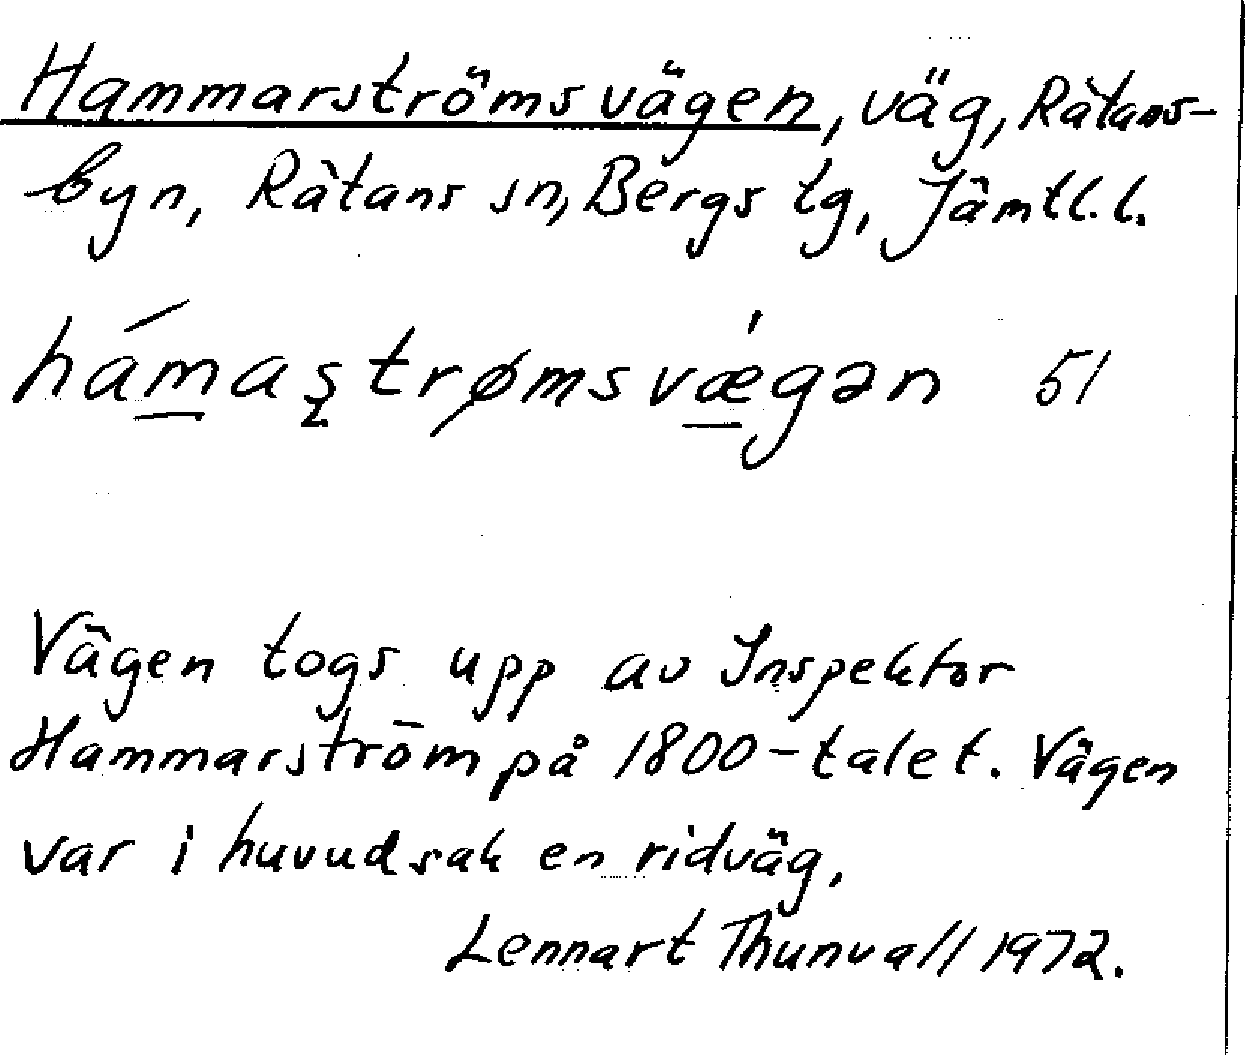 Hammarströmsvägen, väg, Rätans-
byn, Rätans sn, Bergs tg, Jämtl. l.
hámas̨trømsvǽgən 51
Vägen togs upp av Inspektor
Hammarström på 1800-talet. Vägen
var i huvudsak en ridväg.
Lennart Thunvall 1972.